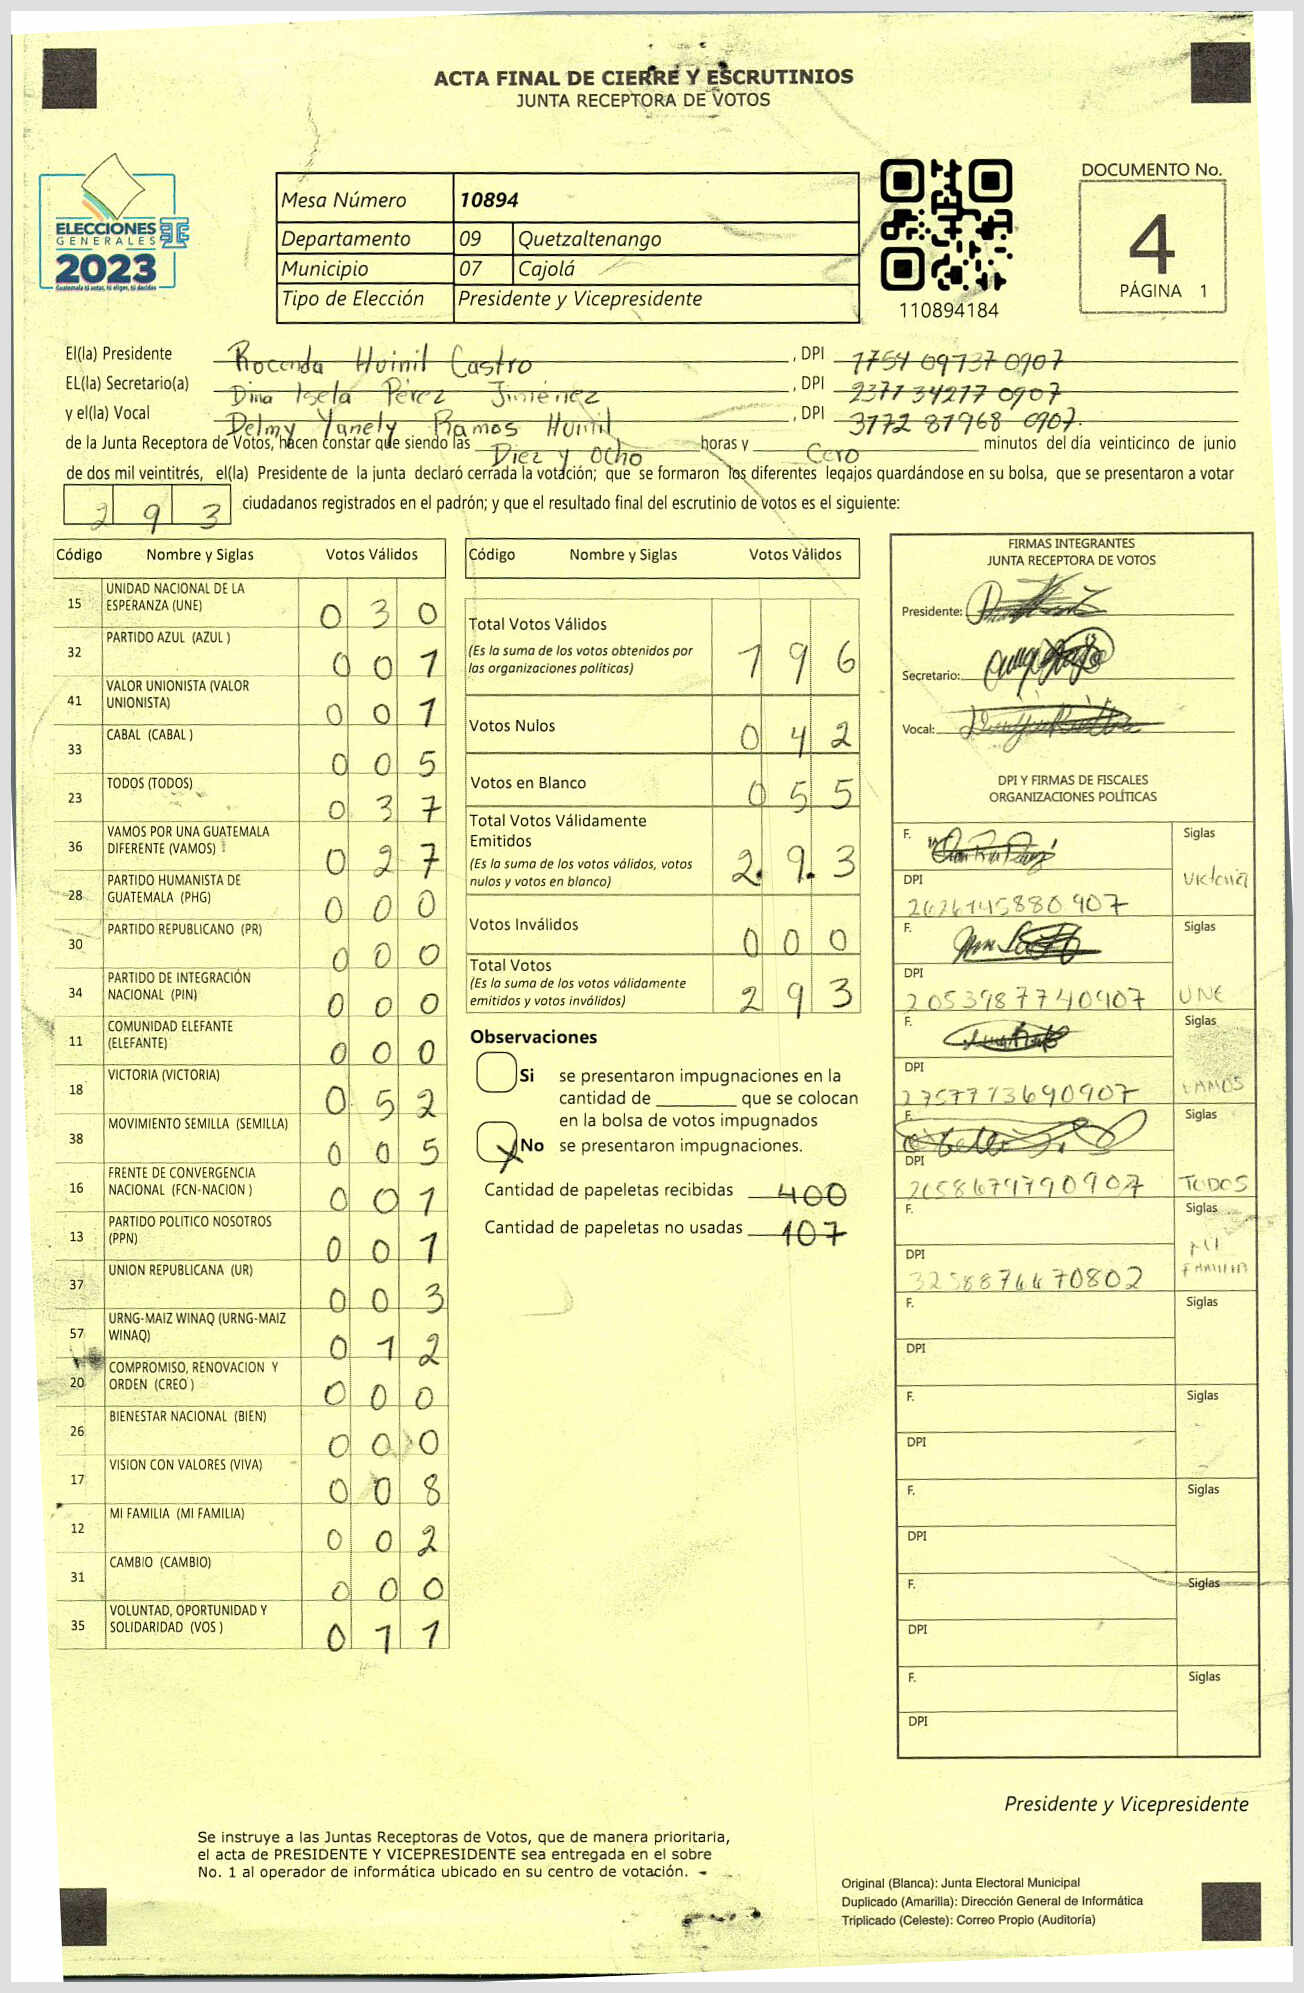 ACTA FINAL DE CIERRE Y ESCRUTINIOS
JUNTA RECEPTORA DE VOTOS
ELECCIONES
GENERALES
2023
Guatemala tú votas, tú eliges, tú decides
Mesa Número 10894
Departamento 09 Quetzaltenango
Municipio 07 Cajolá
Tipo de Elección Presidente y Vicepresidente
110894184
DOCUMENTO No.
4
PÁGINA 1
El(la) Presidente Rocenda Huinil Castro, DPI 1754 09737 0907
EL(la) Secretario(a) Dina Isela Pérez Jiménez, DPI 2377 34217 0907
y el(la) Vocal Delmy Yanely Ramos Huinil, DPI 3172 87968 0907.
de la Junta Receptora de Votos, hacen constar que siendo las Diez y Ocho horas y Cero minutos del día veinticinco de junio
de dos mil veintitrés, el(la) Presidente de la junta declaró cerrada la votación; que se formaron los diferentes legajos quardándose en su bolsa, que se presentaron a votar
293 ciudadanos registrados en el padrón; y que el resultado final del escrutinio de votos es el siguiente:
Código Nombre y Siglas Votos Válidos
15 UNIDAD NACIONAL DE LA ESPERANZA (UNE) 030
32 PARTIDO AZUL (AZUL ) 001
41 VALOR UNIONISTA (VALOR UNIONISTA) 001
33 CABAL (CABAL ) 005
23 TODOS (TODOS) 037
36 VAMOS POR UNA GUATEMALA DIFERENTE (VAMOS) 027
28 PARTIDO HUMANISTA DE GUATEMALA (PHG) 000
30 PARTIDO REPUBLICANO (PR) 000
34 PARTIDO DE INTEGRACIÓN NACIONAL (PIN) 000
11 COMUNIDAD ELEFANTE (ELEFANTE) 000
18 VICTORIA (VICTORIA) 052
38 MOVIMIENTO SEMILLA (SEMILLA) 005
16 FRENTE DE CONVERGENCIA NACIONAL (FCN-NACION ) 001
13 PARTIDO POLITICO NOSOTROS (PPN) 001
37 UNION REPUBLICANA (UR) 003
57 URNG-MAIZ WINAQ (URNG-MAIZ WINAQ) 012
20 COMPROMISO, RENOVACION Y ORDEN (CREO ) 000
26 BIENESTAR NACIONAL (BIEN) 000
17 VISION CON VALORES (VIVA) 008
12 MI FAMILIA (MI FAMILIA) 002
31 CAMBIO (CAMBIO) 000
35 VOLUNTAD, OPORTUNIDAD Y SOLIDARIDAD (VOS ) 011
Código Nombre y Siglas Votos Válidos
Total Votos Válidos 196
(Es la suma de los votos obtenidos por
las organizaciones políticas)
Votos Nulos 042
Votos en Blanco 055
Total Votos Válidamente
Emitidos 293
(Es la suma de los votos válidos, votos
nulos y votos en blanco)
Votos Inválidos 000
Total Votos 293
(Es la suma de los votos válidamente
emitidos y votos inválidos)
Observaciones
Si se presentaron impugnaciones en la
cantidad de ________ que se colocan
en la bolsa de votos impugnados
X No se presentaron impugnaciones.
Cantidad de papeletas recibidas 400
Cantidad de papeletas no usadas 107
FIRMAS INTEGRANTES
JUNTA RECEPTORA DE VOTOS
Presidente:
Secretario:
Vocal:
DPI Y FIRMAS DE FISCALES
ORGANIZACIONES POLÍTICAS
F. Siglas
Victoria
DPI
F. Siglas
DPI
2053987740907 UNE
F. Siglas
DPI
VAMOS
F. Siglas
DPI
TODOS
F. Siglas
MI
FAMILIA
DPI
F. Siglas
DPI
F. Siglas
DPI
F. Siglas
DPI
F. Siglas
DPI
F. Siglas
DPI
Presidente y Vicepresidente
Se instruye a las Juntas Receptoras de Votos, que de manera prioritaria,
el acta de PRESIDENTE Y VICEPRESIDENTE sea entregada en el sobre
No. 1 al operador de informática ubicado en su centro de votación.
Original (Blanca): Junta Electoral Municipal
Duplicado (Amarilla): Dirección General de Informática
Triplicado (Celeste): Correo Propio (Auditoría)